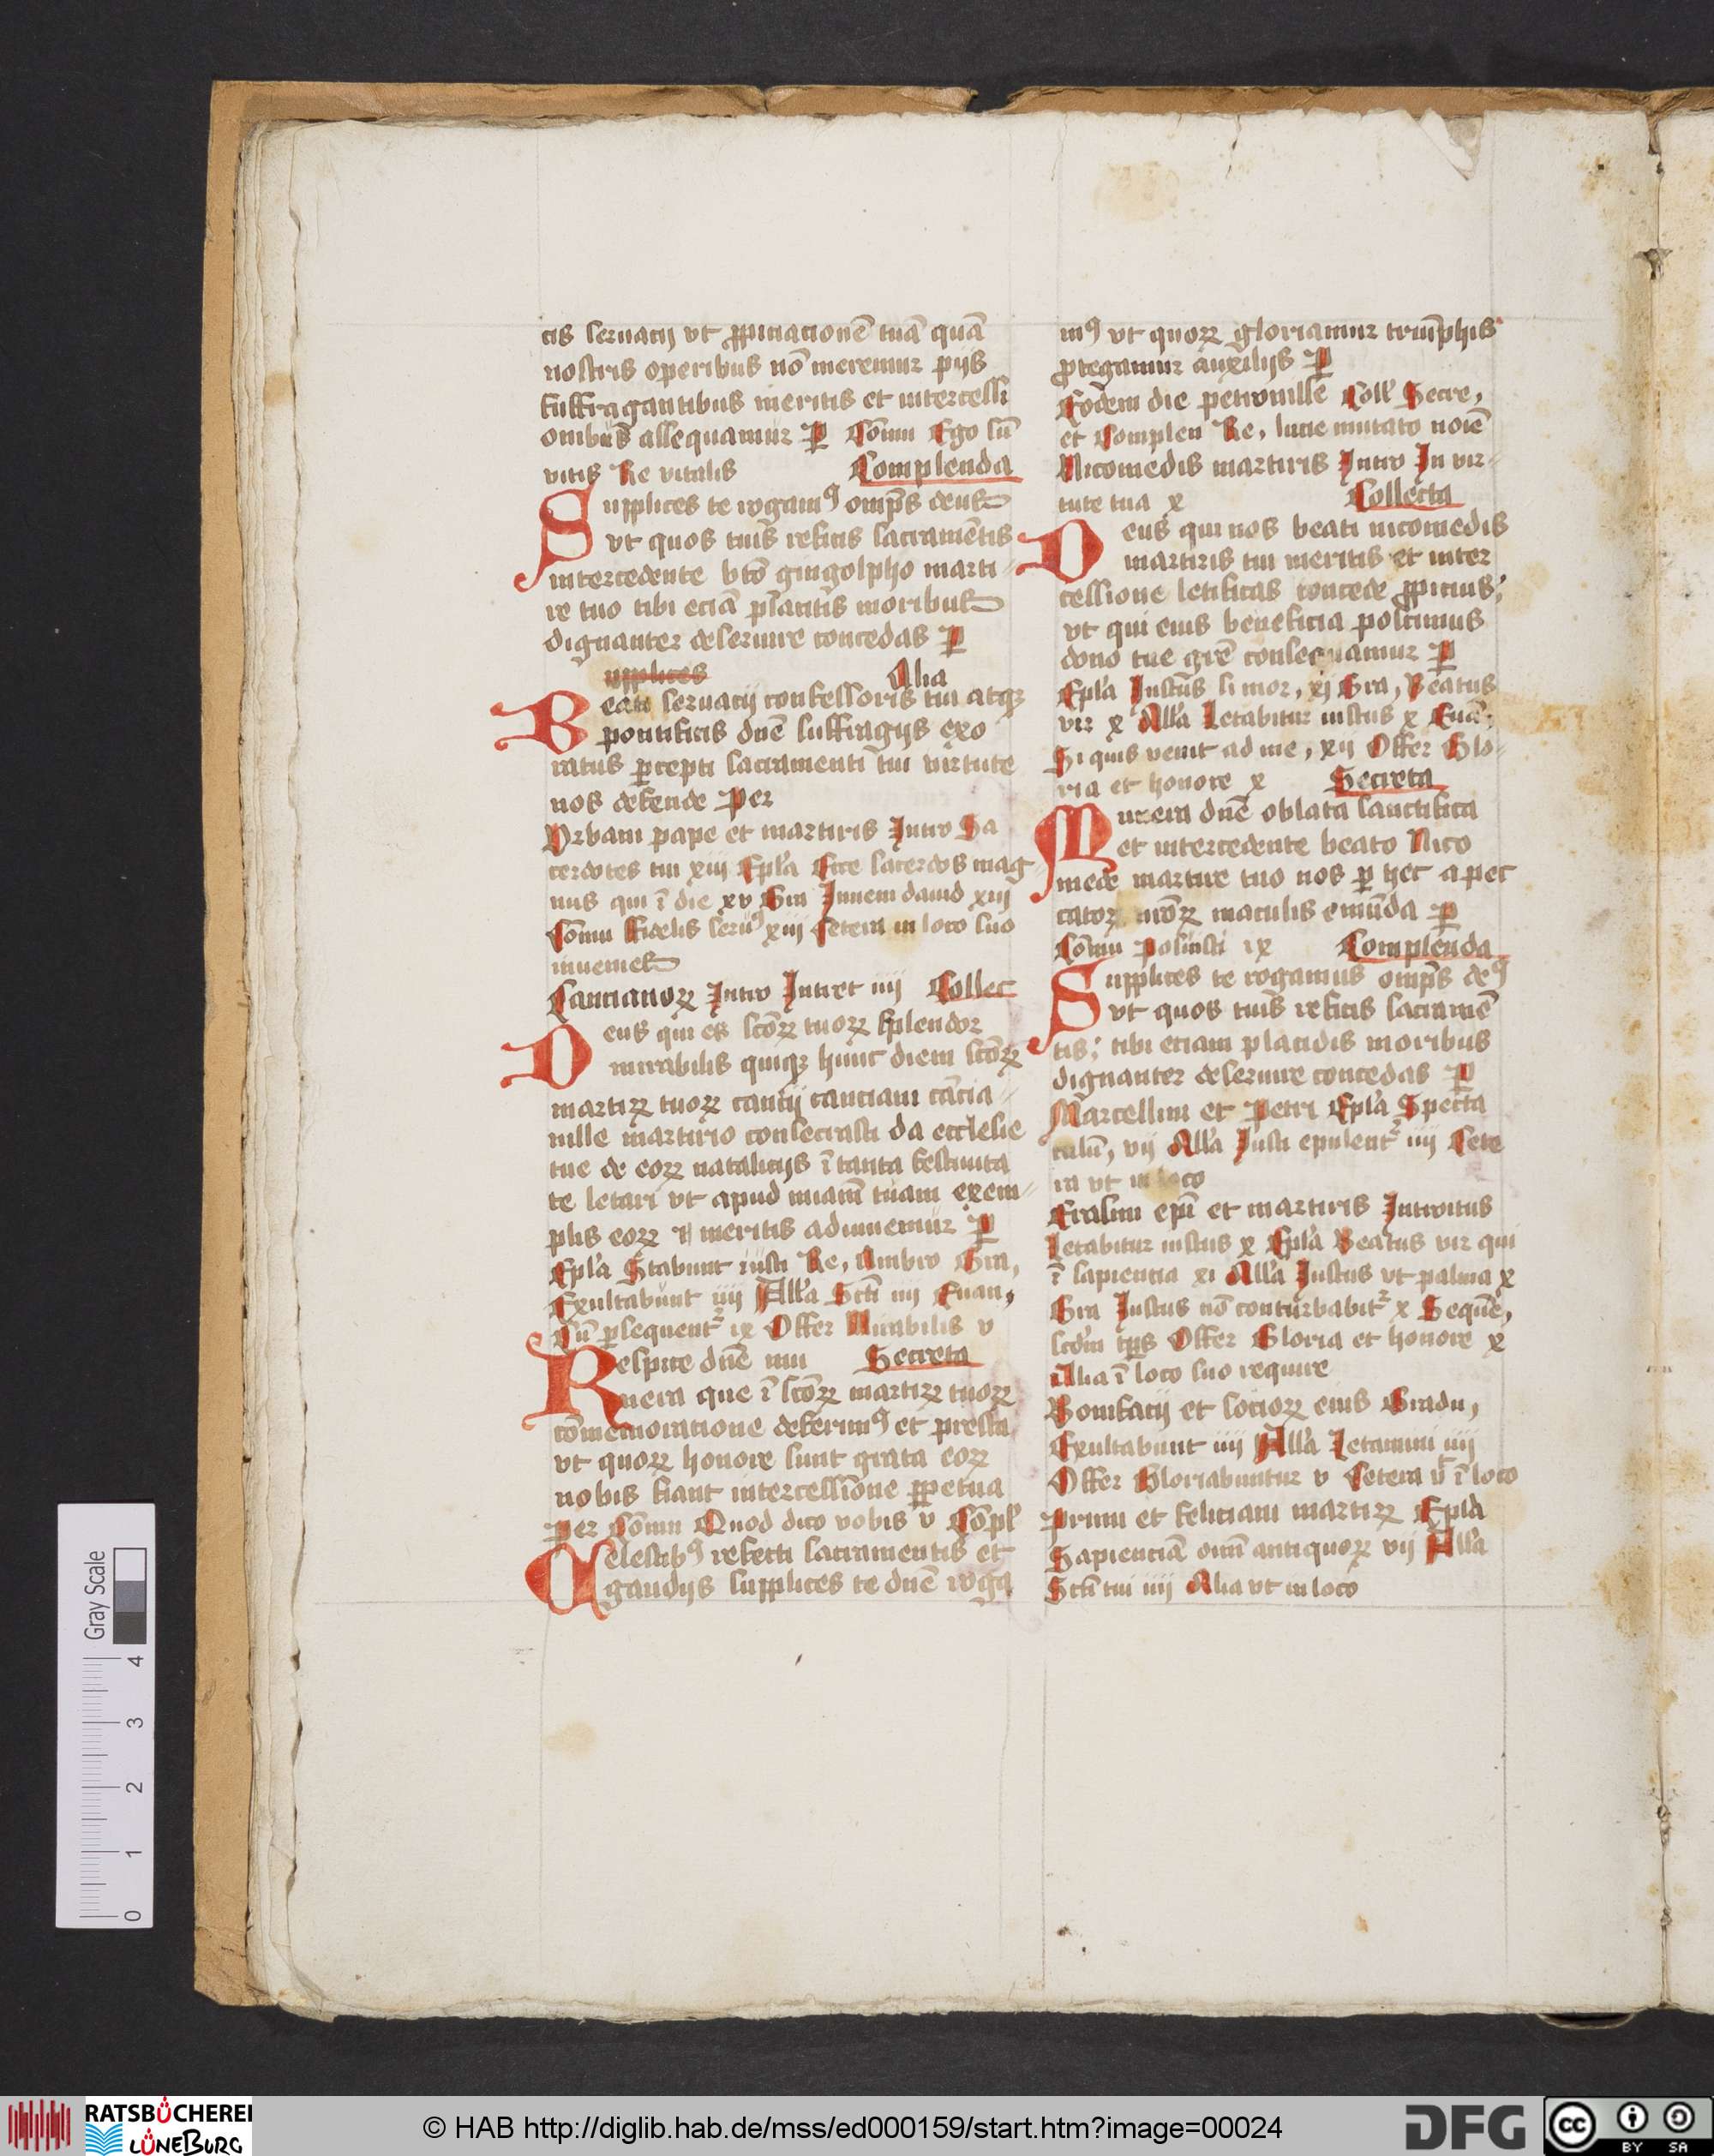 cis seruacij vt ꝓpiciacionē tuā quā
nostris operibus nō meremur pijs
suffragantibus meritis et intercessi
onibus assequamur ꝑ Cōmu Ego sū
vitis Re vitalis Complenda
Supplices te rogamꝰ omp̄s deus
vt quos tuis reficis sacramētis
intercedente btō gingolpho marti
re tuo tibi eciā placitis moribus
dignanter deseruire concedas ꝑ
upplices Alia
Beati seruacij confessoris tui atqꝫ
pontificis dn̄e suffragijs exo
ratus ꝑcepti sacramenti tui virtute
nos defende Per
Vrbani pape et martiris Intro Sa
cerdotes tui xiij Epl'a Ecce sacerdos mag
nus qui ī die xv Gra Inueni dauid xiij
Cōmu Fidelis seruꝰ xiij Cetera in loco suo
inuenies
Cancianoꝝ Intro Intret iiij Collec
Deus qui es sctōꝝ tuoꝝ splendor
mirabilis quiqꝫ hunc diem sctōꝝ
martiꝝ tuoꝝ cancij canciani cācia
nille martirio consecrasti da ecclesie
tue de eoꝝ natalicijs ī tanta festiuita
te letari vt apud miam̄ tuam exem
plis eoꝝ et meritis adiuuemur ꝑ
Epl'a Stabunt iusti Re, Ambro Gra,
Exultabunt iiij All'a Scti iiij Euan,
Cū ꝑsequent᷑ ix Offer Mirabilis v
Respice dn̄e mu Secreta
nera que ī sctōꝝ martiꝝ tuoꝝ
cōmemoracione deferimꝰ et presta
vt quoꝝ honore sunt grata eoꝝ
nobis fiant intercessione ꝑpetua
Per Cōmu Quod dico vobis v Cōpl'
Celestibꝰ refecti sacramentis et
gaudijs supplices te dn̄e roga
mꝰ vt quoꝝ gloriamur triūphis
ꝓtegamur auxilijs ꝑ
Eodem die petronille Coll' Secre,
et Complen Re, lucie mutato noīe
Nicomedis martiris Intro In vir
tute tua x Collecta
Deus qui nos beati nicomedis
martiris tui meritis et inter
cessione letificas concede ꝓpicius;
vt qui eius beneficia poscimus
dono tue grē consequamur ꝑ
Epl'a Iustus si mor, xj Gra, Beatus
vir x All'a Letabitur iustus x Euā,
Si quis venit ad me, xij Offer Glo
ria et honore x Secreta
Munera dn̄e oblata sanctifica
et intercedente beato Nico
mede martire tuo nos ꝑ hec a pec
catoꝝ nrōꝝ maculis emūda ꝑ
Cōmu Posuisti ix Complenda
Supplices te rogamus omp̄s deꝰ
vt quos tuis reficis sacramē
tis; tibi eciam placidis moribus
dignanter deseruire concedas ꝑ
Marcellini et Petri Epl'a Specta
culū, vij All'a Iusti epulent᷑ iiij Cete
ra vt in loco
Erasmi epī et martiris Introitus
Letabitur iustus x Epl'a Beatus vir qui
ī sapiencia xi All'a Iustus vt palma x
Gra Iustus nō conturbabit᷑ x Sequē,
scdm tp̄s Offer Gloria et honore x
Alia ī loco suo require
Bonifacij et socioꝝ eius Gradu,
Exultabunt iiij All'a Letamini iiij
Offer Gloriabuntur v Cetera vt ī loco
Primi et feliciani martiꝝ Epl'a
Sapienciā omn̄ antiquoꝝ vij All'a
Scti tui iiij Alia vt in loco
Gray Scale
4
3
2
1
0
RATSBÜCHEREI
LÜNEBURG
© HAB http://diglib.hab.de/mss/ed000159/start.htm?image=00024
DFG
cc BY SA